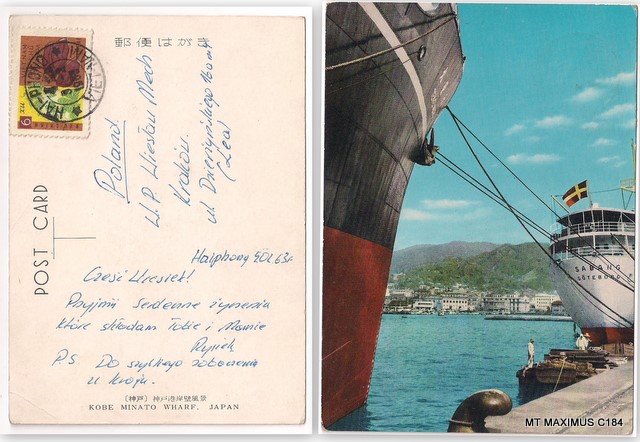 郵便はがき
POST CARD
HAI-PHONG
VIET NAM
Poland
W.P. Wiesław Mech
Kraków
ul. Dzierżyńskiego
Haiphong
Cześć Wiesiek!
Przyjmij serdeczne życzenia
które składam Tobie i Mamie
Rysiek
P.S. Do szybkiego zobaczenia
w kraju.
〔神戸〕神戸港岸壁風景
KOBE MINATO WHARF, JAPAN
SABANG
GÖTEBORG
MT MAXIMUS C184